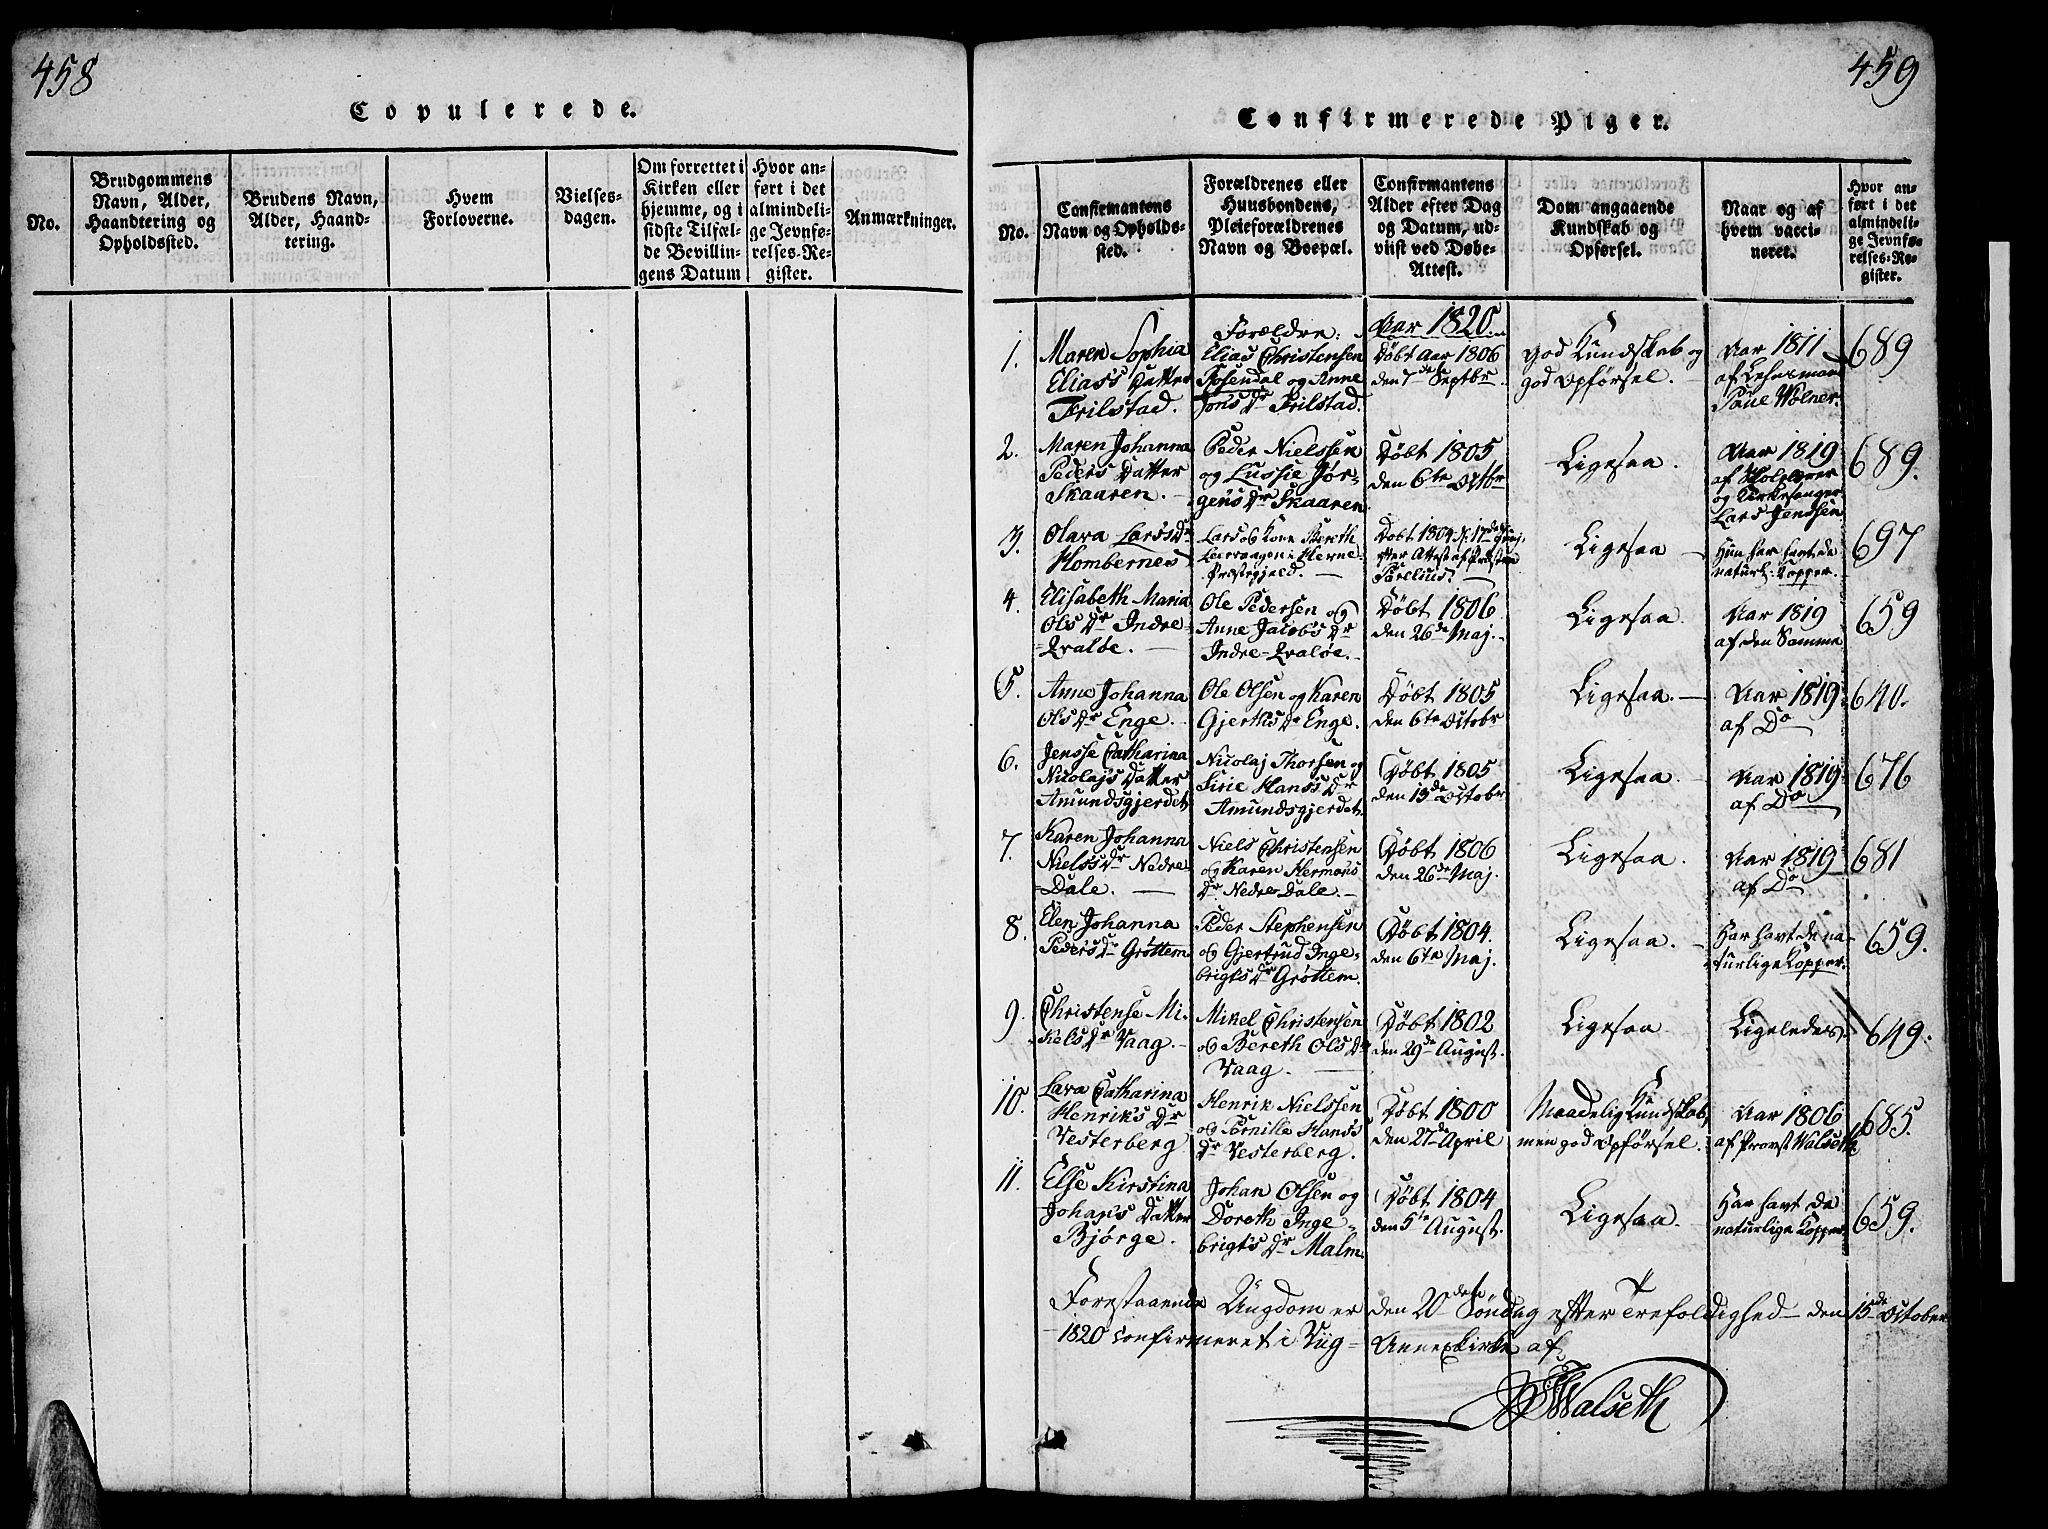 458
Copulerede.
No.
Brudgommens
Navn, Alder,
Haandtering og
Opholdssted.
Brudens Navn,
Alder, Haand-
tering.
Hvem
Forloverne.
Vielses-
dagen.
Om forrettet i
Kirken eller
hjemme, og i
sidste Tilfæl-
de Bevillin-
gens Datum
Hvor an-
ført i det
almindeli-
ge Jevnfø-
relses-Re-
gister.
Anmærkninger.
459
Confirmerede Piger.
No.
Confirmantens
Navn og Opholds-
sted.
Forældrenes eller
Huusbondens,
Pleieforældrenes
Navn og Boepæl.
Confirmantens
Alder efter Dag
og Datum, ud-
viist ved Døbe-
Attest.
Dom angaaende
Kundskab og
Opførsel.
Naar og af
hvem vacci-
neret.
Hvor an-
ført i det
almindeli-
ge Jevnfø-
relses-Re-
gister.
Aar 1820
1.
Maren Sophia
Elias's Datter
Frilstad.
Forældre:
Elias Christensen
Rosendal og Anne
Jons Dr Frilstad.
Døbt Aar 1806
den 7de Septbr
god Kundskab og
god Opførsel.
Aar 1811
af Lehnsmand
Poul Wolner.
689
2.
Maren Johanna
Peders Datter
Skaaren.
Peder Nielssen
og Lussie Jør-
gens Dr Skaaren
Døbt 1805
den 6te Octbr
Ligesaa.
Aar 1819
af Skolelærer
og Kirkesanger
Lars Jenssen
689.
3.
Olava Lars's Dr
Hombernes
Lars og Kone Bereth
i Hevne-
Præstegjeld.
Døbt 1804 d: 17de Junj,
efter Attest af Præsten
Parelius.
Ligesaa
Hun har havt de
naturl: Kopper.
697
4.
Elisabeth Maria
Ols Dr Indre-
Qvaløe.
Ole Pedersen og
Anne Jacobs Dr
Indre-Qvaløe.
Døbt 1806
den 26de Maj.
Ligesaa.
Aar 1819
af den Samme
659
5.
Anne Johanna
Ols Dr Enge.
Ole Olsen og Karen
Gjerths Dr Enge.
Døbt 1805
den 6te Octobr
Ligesaa.
Aar 1819
af Do
640.
6.
Jensse Catharina
Nicolajs Datter
Amundsgjerdet
Nicolaj Thorsen og
Sirie Hans's Dr
Amundsgjerdet.
Døbt 1805
den 13de October
Ligesaa.
Aar 1819
af Do
676
7.
Karen Johanna
Niels's Dr Nedre
=Dale.
Niels Christensen
og Karen Hermans
Dr Nedre-Dale.
Døbt 1806
den 26de Maj.
Ligesaa.
Aar 1819
af Do
681
8.
Elen Johanna
Peders Dr Grøttem
Peder Stephensen
og Gjertrud Inge-
brigts Dr Grøttem.
Døbt 1804.
den 6te Maj.
Ligesaa.
Har havt de na-
turlige Kopper.
659.
9.
Christense Mi-
kels Dr Vaag.
Mikel Christensen
og Bereth Ols Dr
Vaag.
Døbt 1802
den 29de August.
Ligesaa
Ligeledes
649.
10.
Lava Catharina
Henriks Dr
Vesterberg
Henrik Nielssen
og Pernille Hans's
Dr Vesterberg.
Døbt 1800
den 27de April
Maadelig Kundskab,
men god Opførsel.
Aar 1806
af Provst Walseth
685.
11.
Else Kirstina
Johans Datter
Bjørge.
Johan Olsen og
Doroth. Inge-
brigts Dr Malm
Døbt 1804
den 5te August.
Ligesaa.
Har havt de
naturlige Kopper
659.
Forestaaende Ungdom er den 20de Søndag efter Trefoldighed den 15de October
1820 confirmeret i Viig-Annexkirke af
Walseth